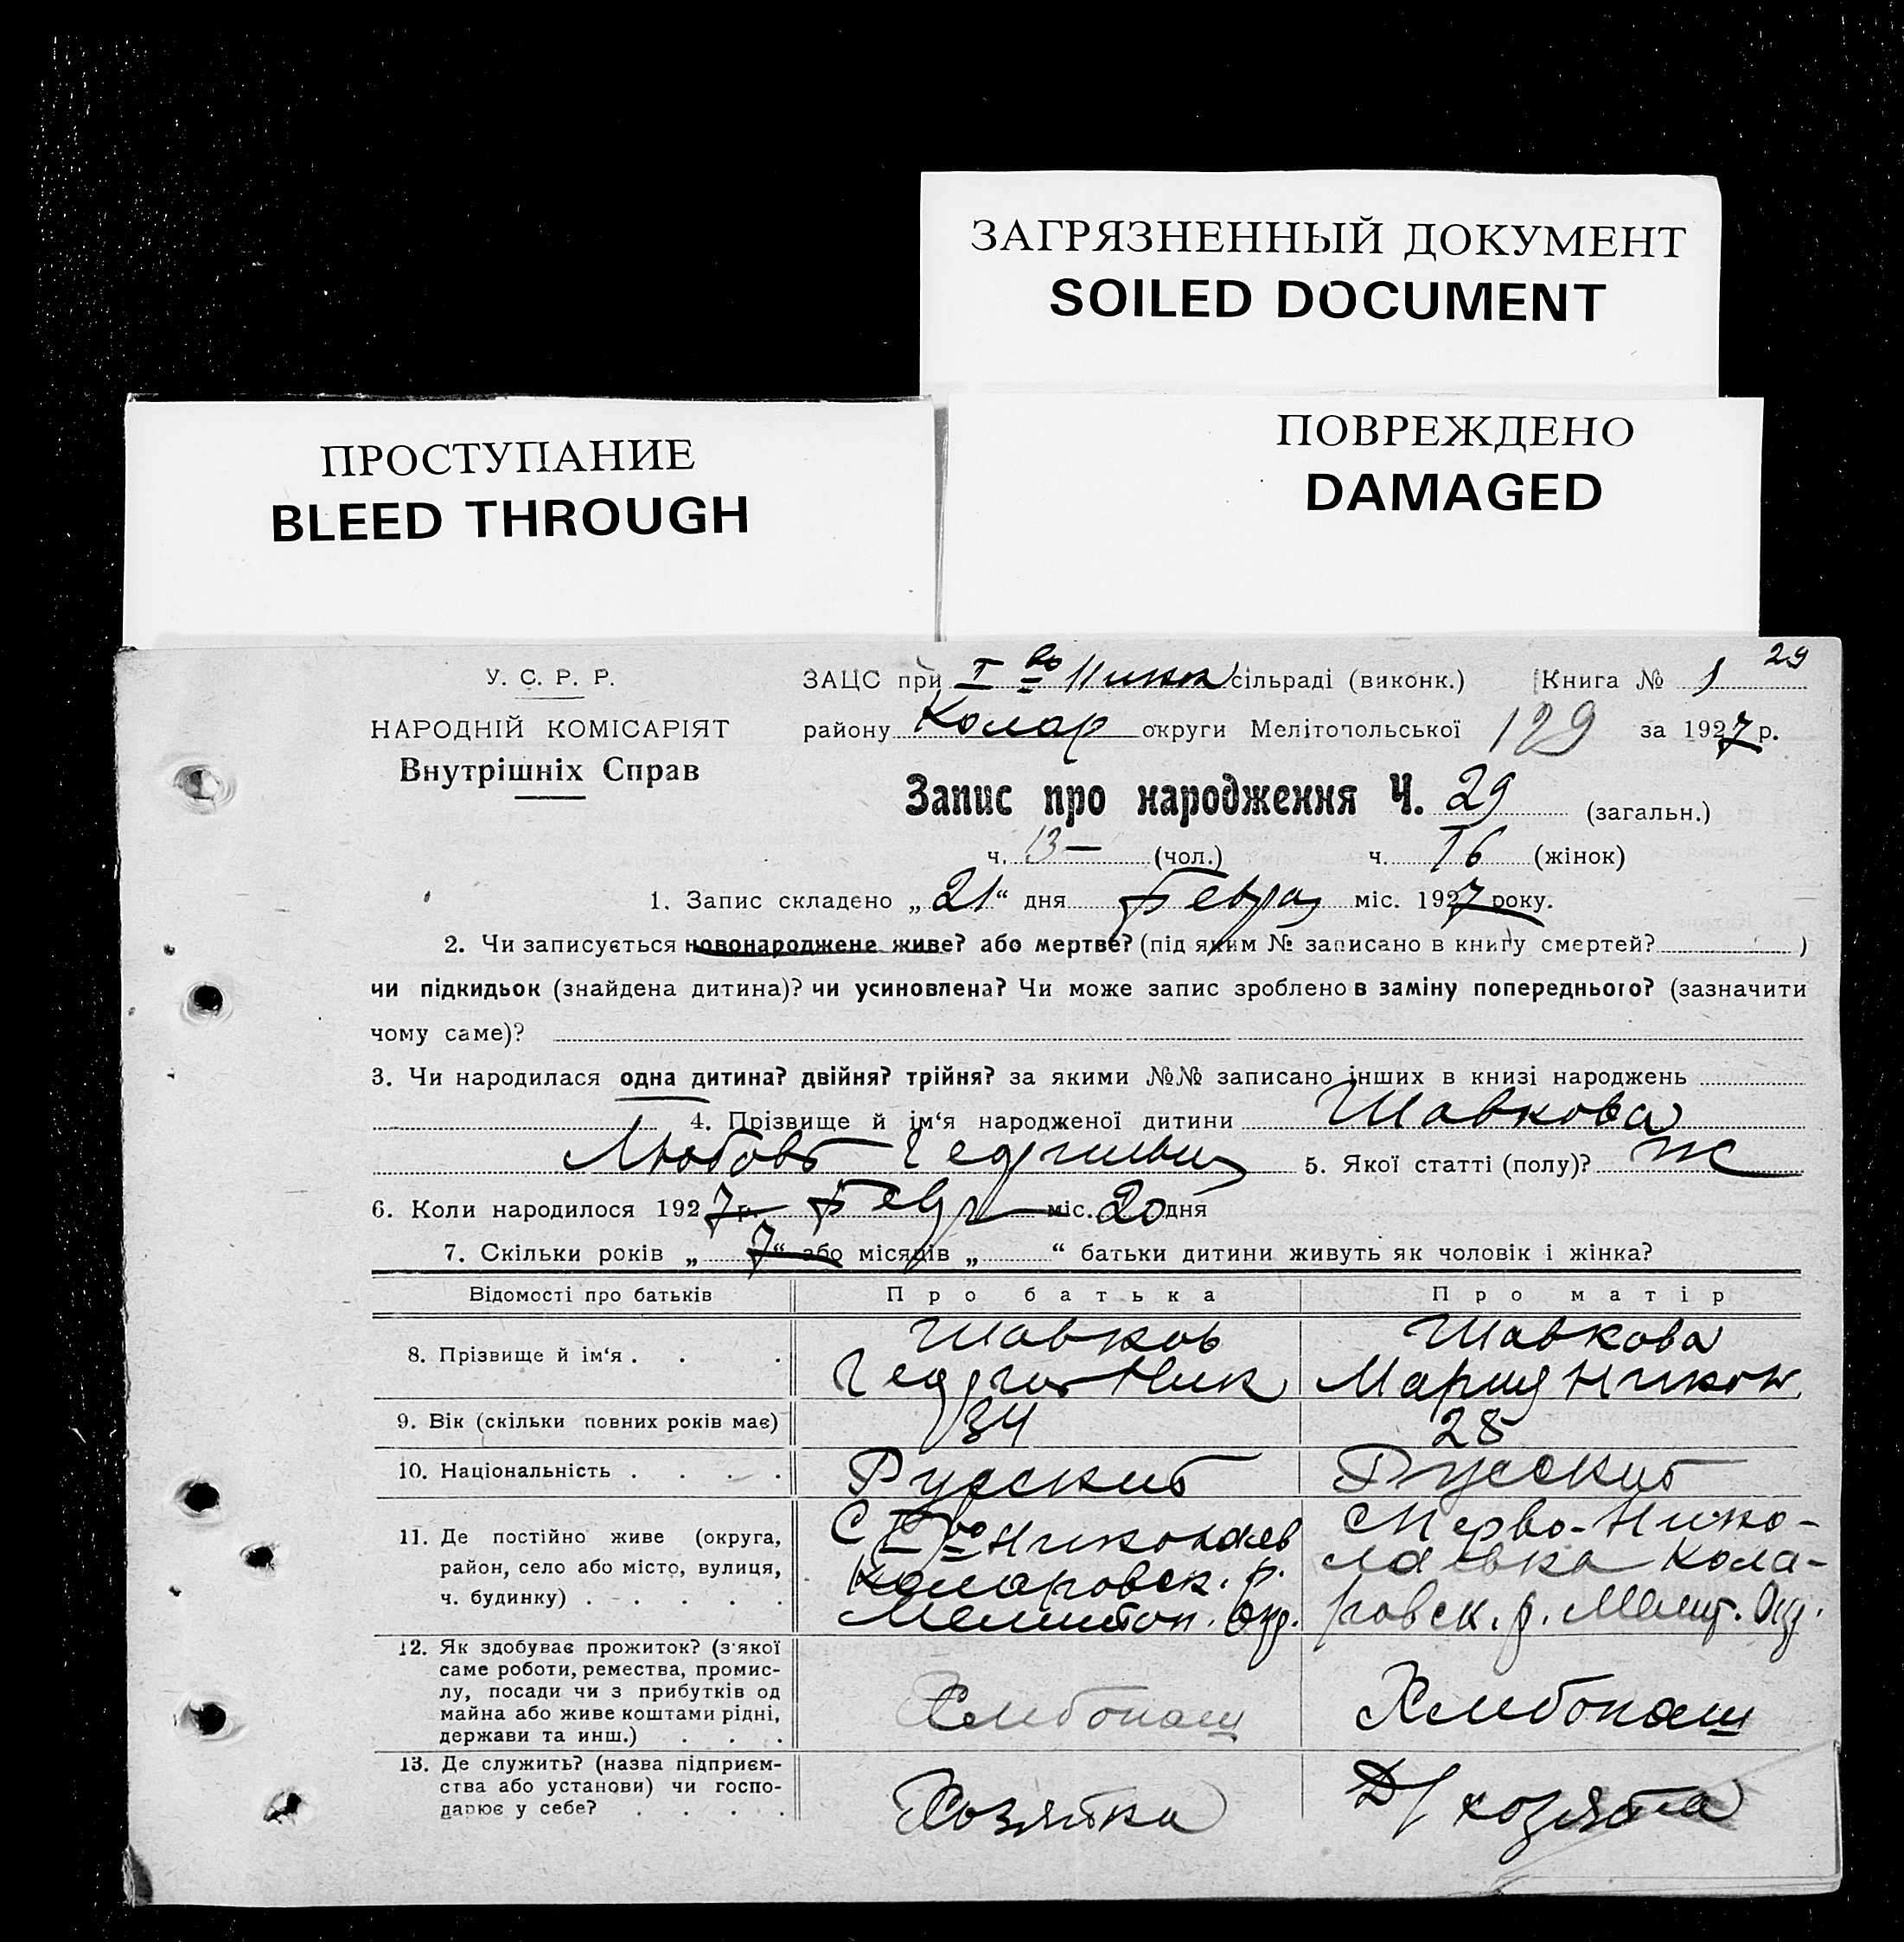 ЗАГРЯЗНЕННЫЙ ДОКУМЕНТ
SOILED DOCUMENT
ПРОСТУПАНИЕ
BLEED THROUGH
ПОВРЕЖДЕНО
DAMAGED
29
У. С. Р. Р.
ЗАЦС при I во Никол сільраді (виконк.) Книга № 1
НАРОДНІЙ КОМІСАРІЯТ
району Колар округи Мелітопольської 129 за 1927 р.
Внутрішніх Справ
Запис про народження Ч. 29 (загальн.)
ч. 13 — (чол.) ч. 16 (жінок)
1. Запис складено „21“ дня Февра міс. 1927 року.
2. Чи записується новонароджене живе? або мертве? (під яким № записано в книгу смертей? )
чи підкидьок (знайдена дитина)? чи усиновлена? Чи може запис зроблено в заміну попереднього? (зазначити
чому саме)?
3. Чи народилася одна дитина? двійня? трійня? за якими №№ записано інших в книзі народжень
4. Прізвище й ім‘я народженої дитини Шавкова
Любовь 5. Якої статті (полу)? ж
6. Коли народилося 1927 р. Февр міс. 20 дня
7. Скільки років „ 7 “ або місяців „ “ батьки дитини живуть як чоловік і жінка?
Відомості про батьків Про батька Про матір
8. Прізвище й ім‘я . . . Шавков Шавкова
Георгий Ник Мария Никон
9. Вік (скільки повних років має) 34 28
10. Національність . . . . Русский Русский
11. Де постійно живе (округа, С I во Николаев С Перво-Нико-
район, село або місто, вулиця, Коларовск. р. лаевка Кола-
ч. будинку) . . . . . Мелитоп. Окр. ровск. р. Мелит. Окр.
12. Як здобуває прожиток? (з'якої
саме роботи, ремества, промис-
лу, посади чи з прибутків од Хлибопаш Хлибопаш
майна або живе коштами рідні,
держави та инш.) . . .
13. Де служить? (назва підприєм-
ства або установи) чи госпо- Д/ хозяйка
дарює у себе? . . . . Хозяйка